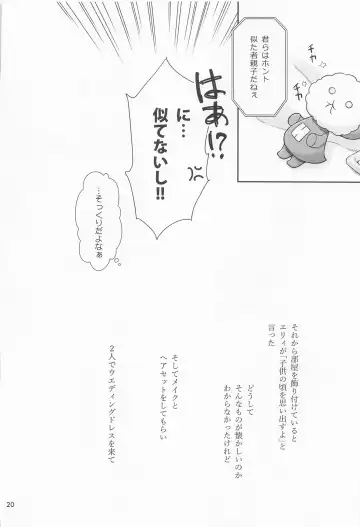 君らはホント
似た者親子だねぇ
チカ
チカ
はあ!?
に…
似てないし!!
…そっくりだよなぁ
それから部屋を飾り付けていると
エリィが「子供の頃を思い出すよ」と
言った
どうして
そんなものが懐かしいのか
わからなかったけれど
そしてメイクと
ヘアセットをしてもらい
2人でウエディングドレスを来て
20